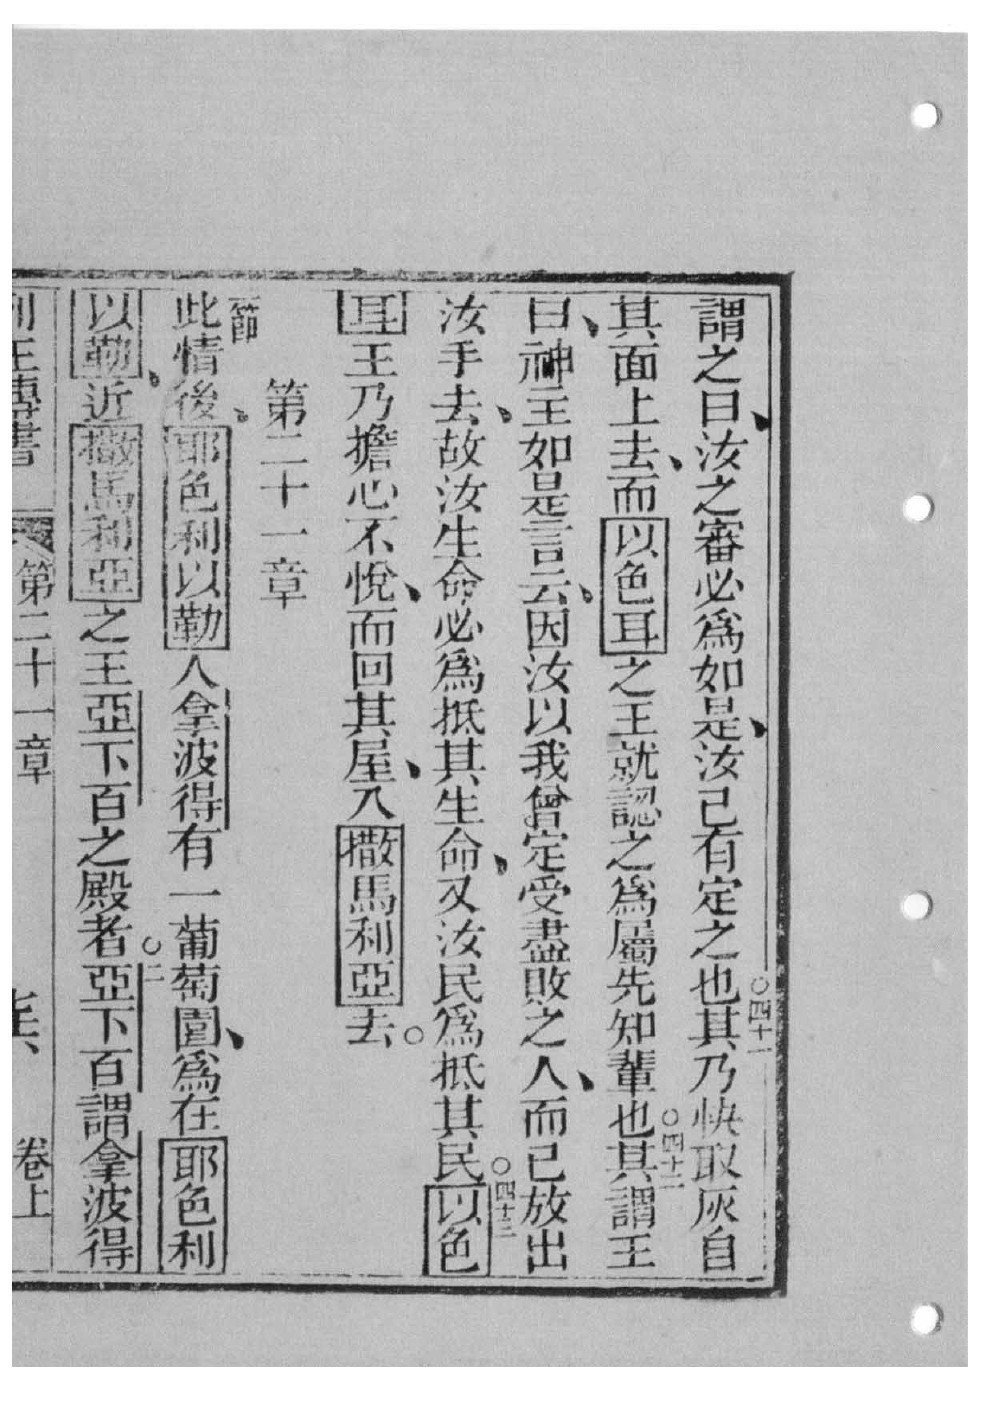 謂之曰、汝之審必爲如是、汝己有定之也○四十一其乃快取灰自
其面上去、而以色耳之王就認之爲屬先知輩也○四十二其謂王
曰、神主如是言云、因汝以我曾定受盡敗之人、而已放出
汝手去、故汝生命必爲抵其生命、又汝民爲抵其民○四十三以色
耳王乃擔心不悅、而回其屋、入撒馬利亞去○
第二十一章
一節此情後、耶色利以勒人拿波得有一葡萄園、爲在耶色利
以勒、近撒馬利亞之王亞下百之殿者○二亞下百謂拿波得
列王傳書 第二十一章 卷上